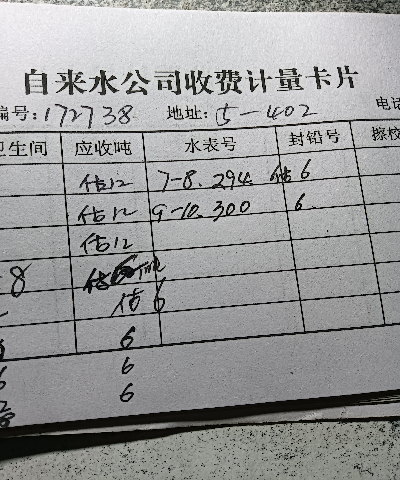 自来水公司收费计量卡片
编号:172738 地址:5-402 电话
卫生间 应收吨 水表号 封铅号 擦校
估12 7-8.294 估6
估12 9-10.300 6
估12
8 估
估6
6
6 6
6